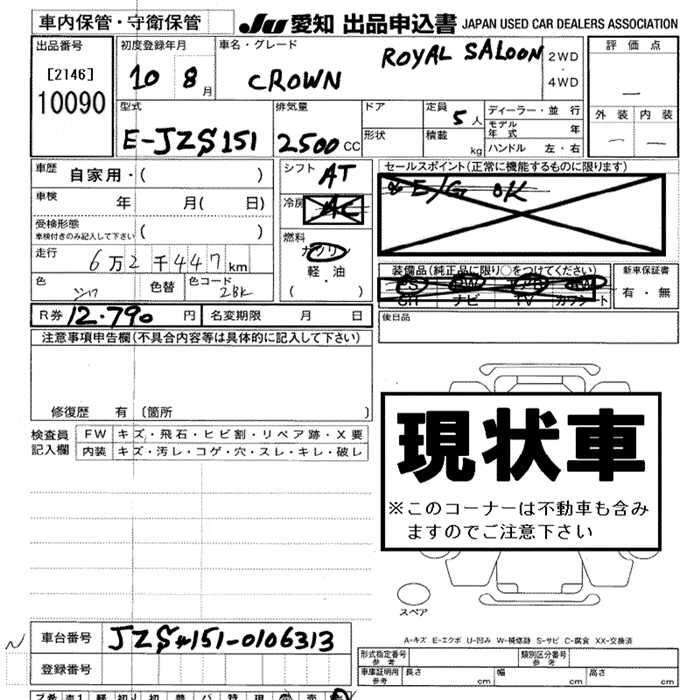 車内保管・守衛保管 JU 愛知 出品申込書 JAPAN USED CAR DEALERS ASSOCIATION
出品番号 初度登録年月 車名・グレード 2WD 評価点
[2146] 10 8 月 CROWN ROYAL SALOON ・
10090 4WD
型式 排気量 ドア 定員 5 人 ディーラー・並行 外装 内装
E-JZS151 2500 CC 形状 積載 kg モデル年式 年
ハンドル 左・右
車歴 自家用・( ) シフト AT セールスポイント(正常に機能するものに限ります)
車検 年 月( 日) 冷房 AC E/G OK
受検形態
車検付きのみ記入して下さい ( ) 燃料 ガソリン
走行 6万2千447km 軽・油
色 シロ 色替 色コード 2BK ( ・ ) 装備品(純正品に限り○をつけてください) 新車保証書
PS PW
SR ナビ TV カワシート 有・無
R券 12.790 円 名変期限 月 日 後日品
注意事項申告欄(不具合内容等は具体的に記入して下さい)
修復歴 有 〔箇所 〕
検査員 FW キズ・飛石・ヒビ割・リペア跡・X要
記入欄 内装 キズ・汚レ・コゲ・穴・スレ・キレ・破レ
現状車
※このコーナーは不動車も含み
ますのでご注意下さい
スペア
A-キズ E-エクボ U-凹み W-補修跡 S-サビ C-腐食 XX-交換済
車台番号 JZS151-0106313
登録番号
形式指定番号 参考 類別区分番号 参考
車庫証明用 参考 長さ cm 幅 cm 高さ cm